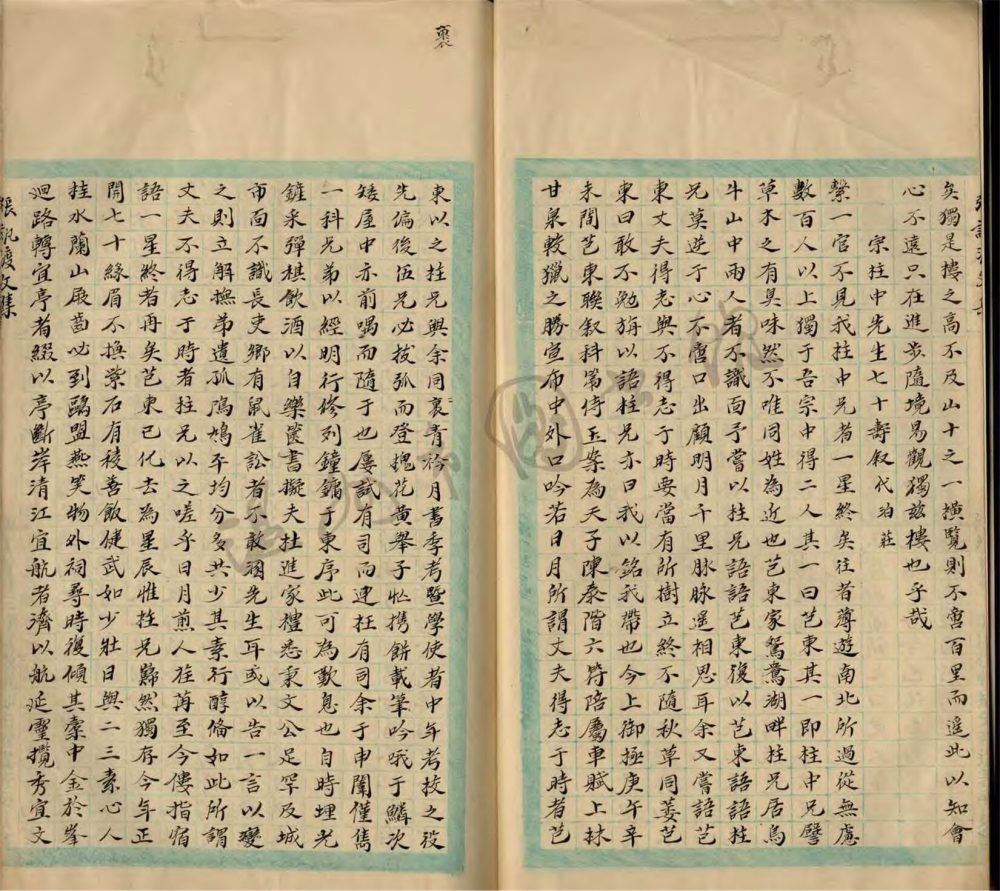 矣獨是樓之高不及山十之一橫覽則不啻百里而遥此以知會
心不遠只在進步隨境易觀獨兹樓也乎哉
宗柱中先生七十壽叙代珀莊
繫一官不見我柱中兄者一星終矣往者薄遊南北所過從無慮
數百人以上獨于吾宗中得二人其一曰芑東其一即柱中兄譬
草木之有臭味然不唯同姓為近也芑東家鴛鴦湖畔柱兄居烏
斗山中兩人者不識面予嘗以柱兄語語芑東復以芑東語語柱
兄莫逆于心不啻口出顧明月千里脉脉遥相思耳余又嘗語芑
東丈夫得志與不得志于時要當有所樹立終不隨秋草同萎芑
東曰敢不勉旃以語柱兄亦曰我以銘我帶也今上御極庚午辛
未間芑東聯叙科第侍玉案為天子陳泰階六符陪屬車賦上林
甘泉較獵之勝宣布中外口吟若日月所謂丈夫得志于時者芑
裹
東以之柱兄與余同裹青衿月書季考暨學使者中年考校之役
先偏後伍兄必拔弧而登槐花黄舉子忙携餅載筆吟哦于鱗次
矮屋中亦前喁而隨于也屢試有司而連枉有司余于申闈僅雋
一科兄弟以經明行修列鐘鏞于東序此可為歎息也自時埋光
鏟采彈棋飲酒以自樂箧書擬夫杜進家禮悉秉文公足罕及城
市面不識長吏鄉有鼠雀訟者不敢溷先生耳或以告一言以變
之則立解撫弟遺孤鳲鳩平均分多共少其素行醇備如此所謂
丈夫不得志于時者柱兄以之嗟乎日月煎人荏苒至今僂指宿
語一星終者再矣芑東已化去為星辰惟柱兄巋然獨存今年正
開七十緣眉不換紫石有稜善飯健武如少壯日與二三素心人
挂水蘭山展齒必到鷗盟燕笑物外祠尋時復傾其橐中金於峯
迴路轉宜亭者綴以亭斷岸清江宜航者濟以航延靈攬秀宜文